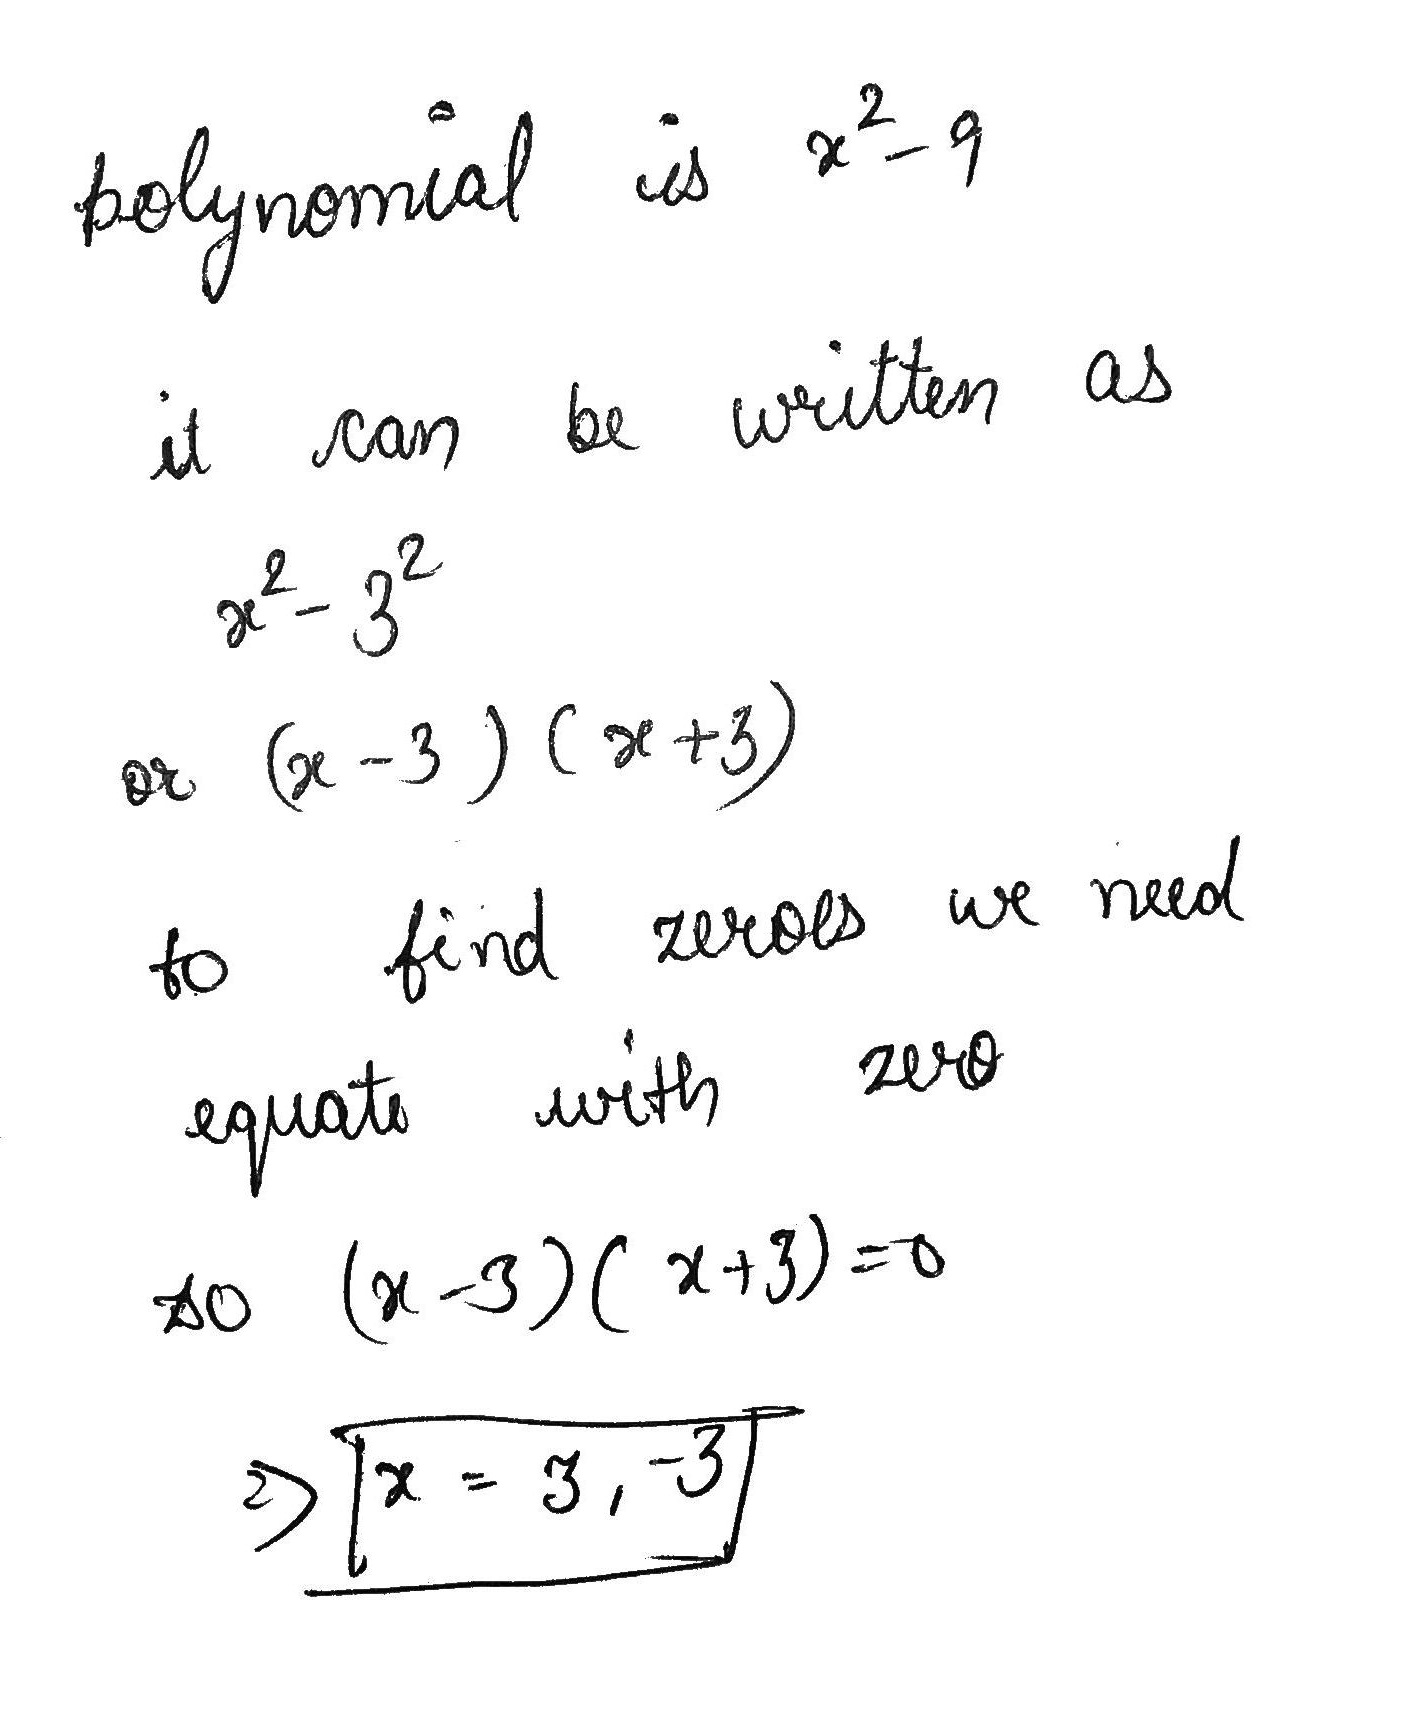 polynomial is x² - 9
it can be written as
x² - 3²
or (x - 3) (x + 3)
to find zeroes we need
equate with zero
so (x - 3) (x + 3) = 0
⇒ x = 3, -3